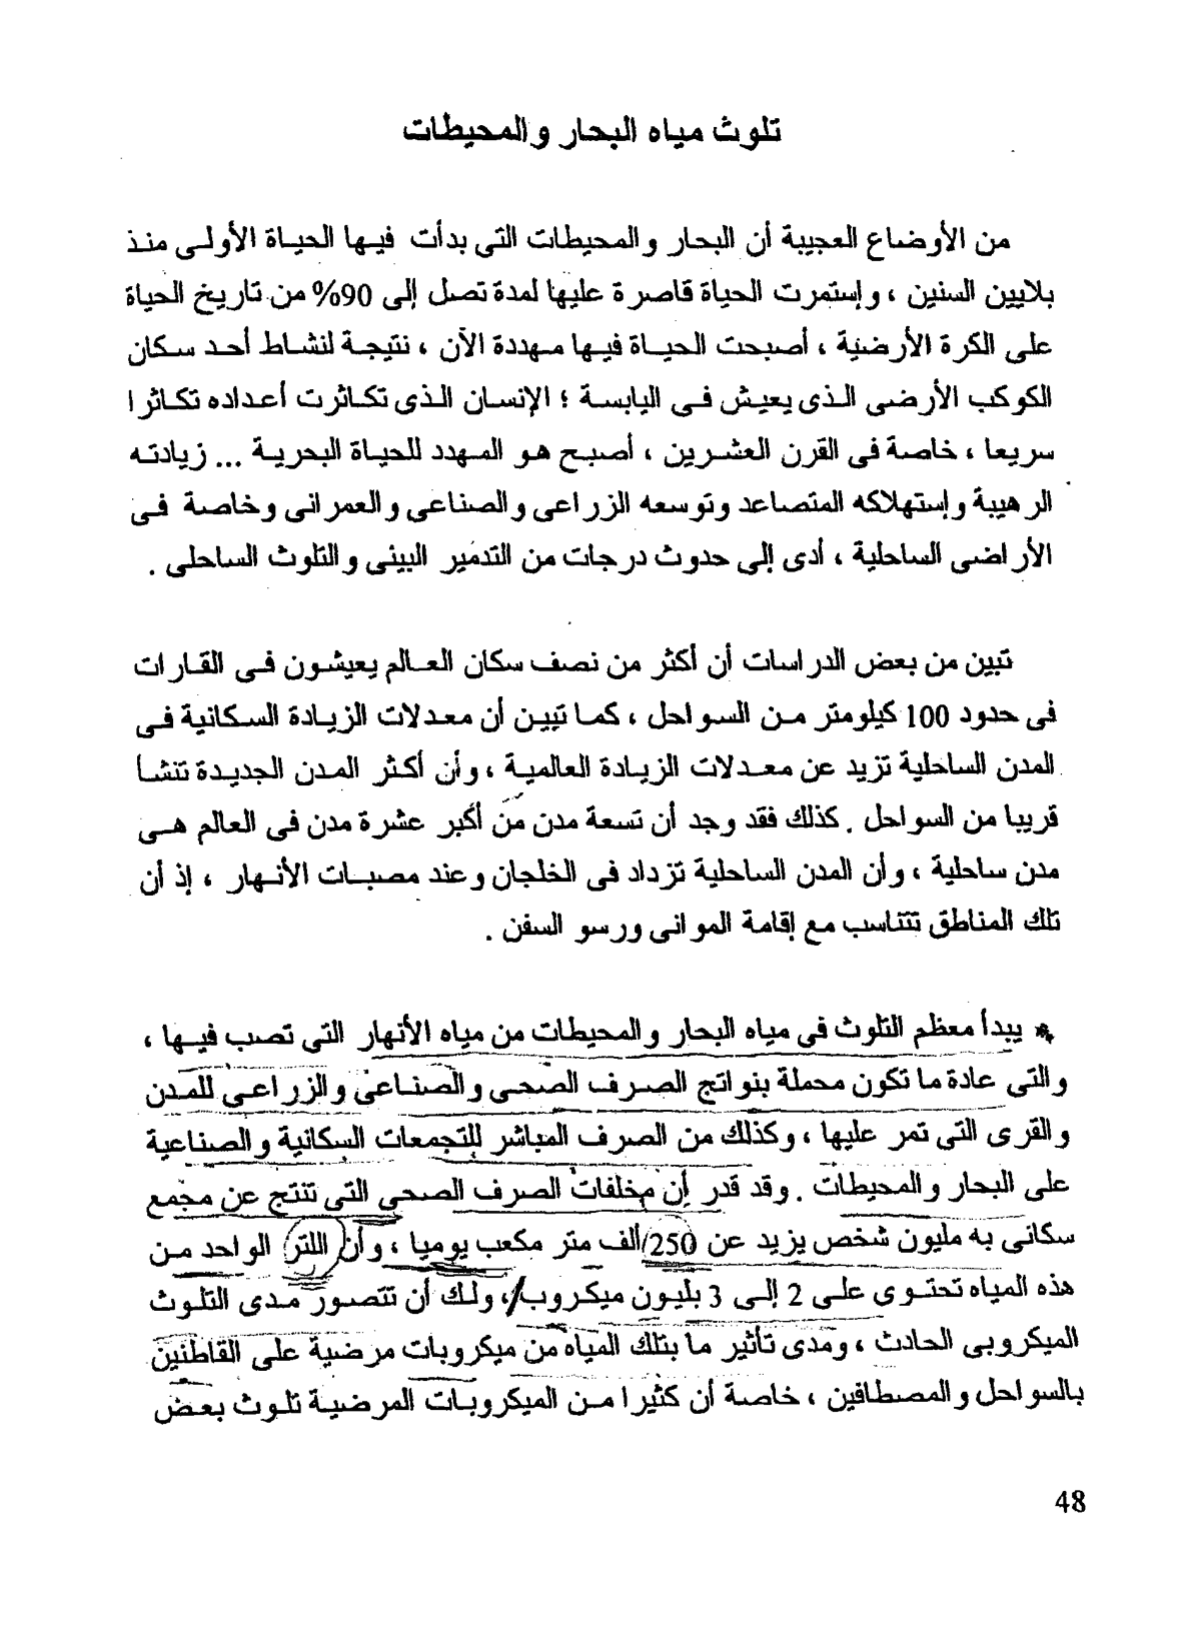 تلوث مياه البحار والمحيطات
من الأوضاع العجيبة أن البحار والمحيطات التى بدأت فيها الحياة الأولى منذ
بلايين السنين ، وإستمرت الحياة قاصرة عليها لمدة تصل إلى 90% من تاريخ الحياة
على الكرة الأرضية ، أصبحت الحياة فيها مهددة الآن ، نتيجة لنشاط أحد سكان
الكوكب الأرضى الذى يعيش فى اليابسة ؛ الإنسان الذى تكاثرت أعداده تكاثرا
سريعا ، خاصة فى القرن العشرين ، أصبح هو المهدد للحياة البحرية ... زيادته
الرهيبة وإستهلاكه المتصاعد وتوسعه الزراعى والصناعى والعمرانى وخاصة فى
الأراضى الساحلية ، أدى إلى حدوث درجات من التدمير البيئى والتلوث الساحلى .
تبين من بعض الدراسات أن أكثر من نصف سكان العالم يعيشون فى القارات
فى حدود 100 كيلومتر من السواحل ، كما تبين أن معدلات الزيادة السكانية فى
المدن الساحلية تزيد عن معدلات الزيادة العالمية ، وأن أكثر المدن الجديدة تنشأ
قريبا من السواحل . كذلك فقد وجد أن تسعة مدن من أكبر عشرة مدن فى العالم هى
مدن ساحلية ، وأن المدن الساحلية تزداد فى الخلجان وعند مصبات الأنهار ، إذ أن
تلك المناطق تتناسب مع إقامة الموانى ورسو السفن .
* يبدأ معظم التلوث فى مياه البحار والمحيطات من مياه الأنهار التى تصب فيها ،
والتى عادة ما تكون محملة بنواتج الصرف الصحى والصناعى والزراعى للمدن
والقرى التى تمر عليها ، وكذلك من الصرف المباشر للتجمعات السكانية والصناعية
على البحار والمحيطات . وقد قدر أن مخلفات الصرف الصحى التى تنتج عن مجمع
سكانى به مليون شخص يزيد عن 250 ألف متر مكعب يوميا ، وأن اللتر الواحد من
هذه المياه تحتوى على 2 إلى 3 بليون ميكروب ، ولك أن تتصور مدى التلوث
الميكروبى الحادث ، ومدى تأثير ما بتلك المياه من ميكروبات مرضية على القاطنين
بالسواحل والمصطافين ، خاصة أن كثيرا من الميكروبات المرضية تلوث بعض
48